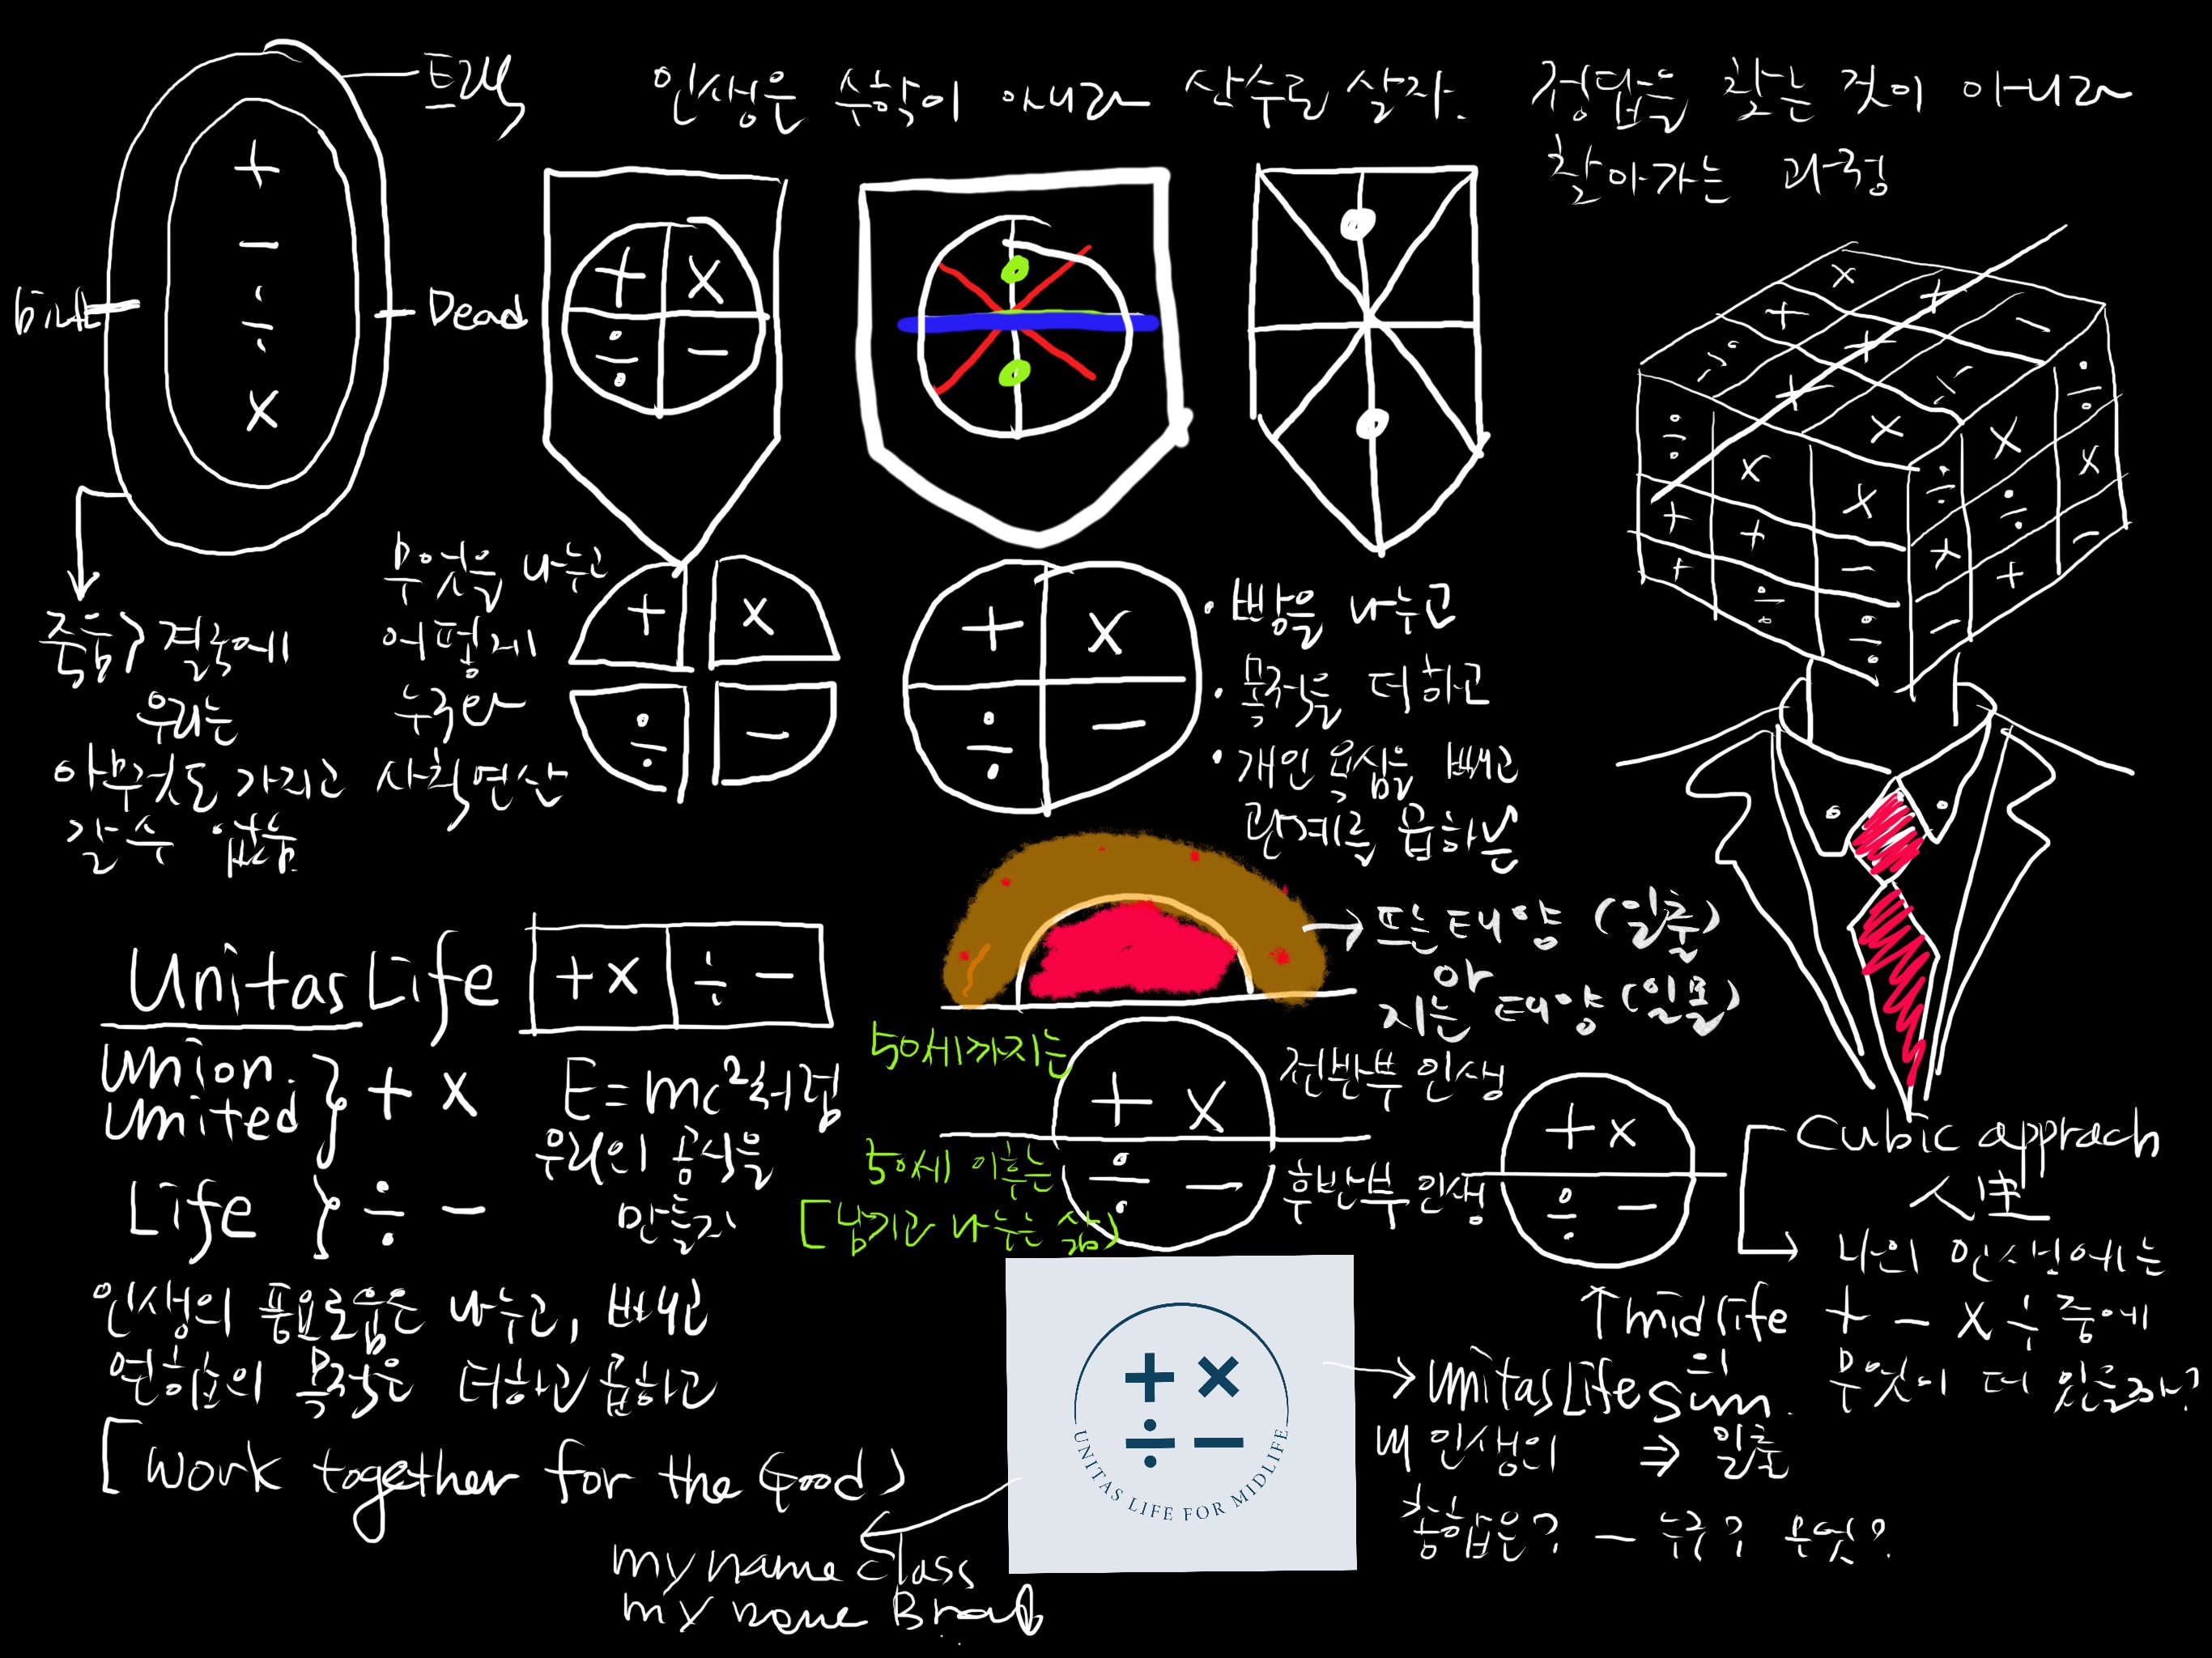 트랙
인생은 수학이 아니라 산수로 살자.
정답을 찾는 것이 아니라
찾아가는 과정
+
−
÷
×
Dead
+ ×
÷ −
무엇을 나누고
어떻게
누구와
사칙연산
죽음 > 결국에
우리는
아무것도 가지고
갈 수 없음.
+ ×
÷ −
+ ×
÷ −
· 빵을 나누고
· 목적을 더하고
· 개인 욕심을 빼고
관계를 곱하는
→ 뜨는 태양 (일출)
와
지는 태양 (일몰)
Unitas Life
+ × ÷ −
union.
united } + ×
Life } ÷ −
E=mc²처럼
우리의 공식을
만들자
50세까지는
+ ×
전반부 인생
50세 이후는
÷ −
후반부 인생
[남기고 나누는 삶)
+ ×
÷ −
↑ midlife
Cubic apprach
人生
나의 인생에는
+ − × ÷ 중에
무엇이 더 있을까?
인생의 풍요로움은 나누고, 빼고
연합의 목적은 더하고 곱하고
[Work together for the Good)
+ ×
÷ −
UNITAS LIFE FOR MIDLIFE
→ unitas Life의 sum.
내 인생의 ⇒ 일출
총합은? − 누구? 무엇?
my name class
my name Brand